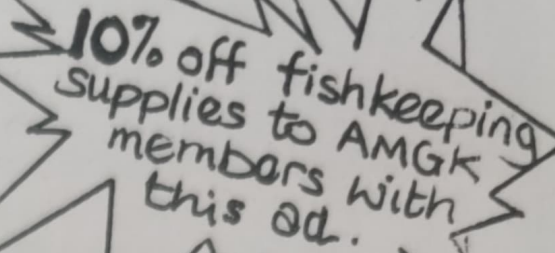 10% off fishkeeping
supplies to AMGK
members with
this ad.